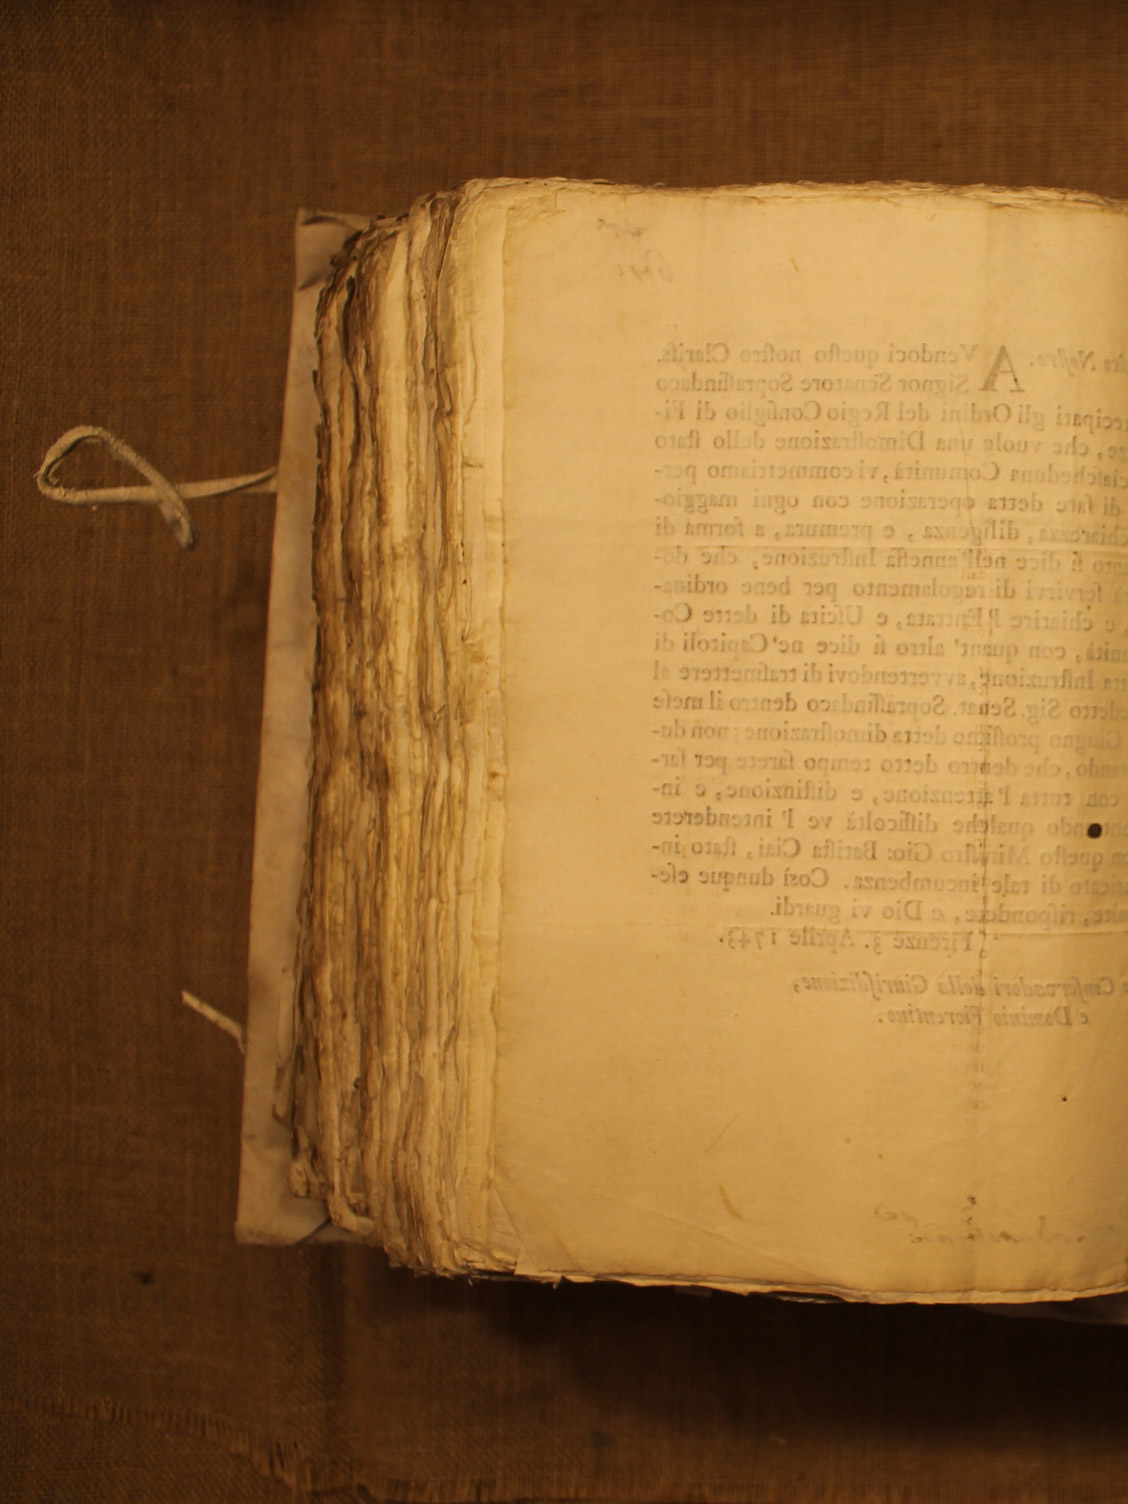 Noſtro. A Vendoci queſto noſtro Clariſs.
Signor Senatore Sopraſſindaco
ecipati gli Ordini del Regio Conſiglio di Fi-
ze, che vuole una Dimoſtrazione dello ſtato
ciaſcheduna Comunità, vi commettiamo per-
di fare detta operazione con ogni maggio-
chiarezza, diligenza, e premura, a forma di
anto ſi dice nell'anneſſa Inſtruzione, che do-
rà ſervirvi di regolamento per bene ordina-
, e chiarire l'Entrata, e Uſcita di dette Co-
unità, con quant' altro ſi dice ne' Capitoli di
tta Inſtruzione, avvertendovi di traſmettere al
detto Sig. Senat. Sopraſſindaco dentro il meſe
Giugno proſſimo detta dimoſtrazione; non du-
ando, che dentro detto tempo ſarete per far-
con tutta l'attenzione, e diſtinzione, e in-
ontrando qualche difficoltà ve l' intenderete
queſto Miniſtro Gio: Batiſta Ciai, ſtato in-
ricato di tale incumbenza. Così dunque eſe-
uite, riſpondete, e Dio vi guardi.
Firenze 3. Aprile 1743.
Conſervadori della Giuriſdizione,
e Dominio Fiorentino.